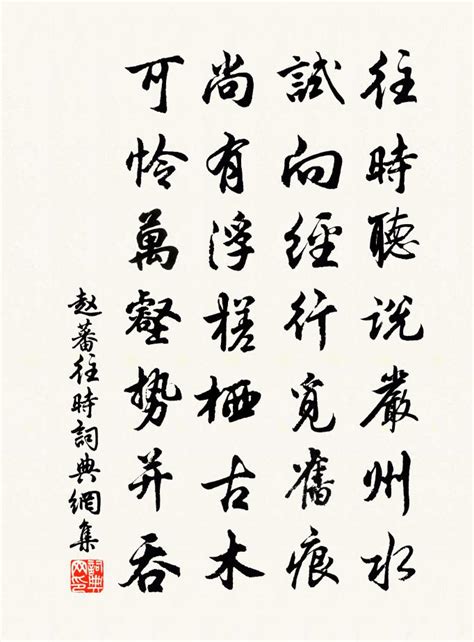 往時聽說嚴州水
試向經行覓舊痕
尚有浮槎栖古木
可怜萬壑勢并吞
赵蕃往時詞典網集
詞典網印